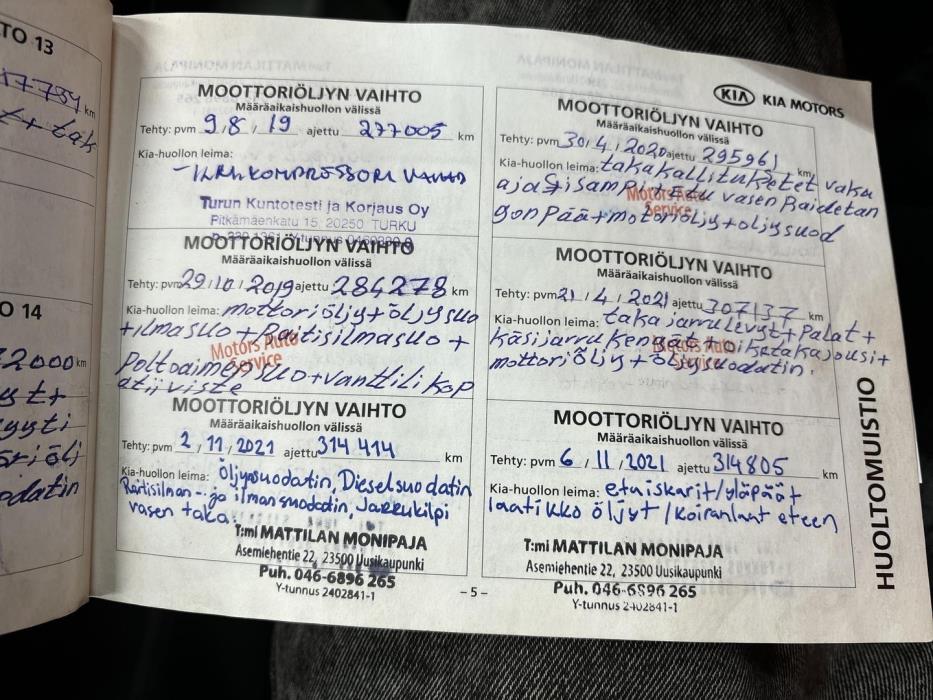 TO 13
17734 km
O 14
2000 km
odatin
KIA KIA MOTORS
MOOTTORIÖLJYN VAIHTO
Määräaikaishuollon välissä
Tehty: pvm 9,8,19 ajettu 277005 km
Kia-huollon leima:
KOMPRESSORI
Turun Kuntotesti ja Korjaus Oy
Pitkämäenkatu 15, 20250 TURKU
MOOTTORIÖLJYN VAIHTO
Määräaikaishuollon välissä
Tehty: pvm 30,4,2020 ajettu 295961 km
Kia-huollon leima: takakallitukset vaksu
vasen Raidetan
gonpää+motoriöljy+öljysuod
Motors Auto
Service
MOOTTORIÖLJYN VAIHTO
Määräaikaishuollon välissä
Tehty: pvm 29,10,2019 ajettu 284278 km
Kia-huollon leima: mottoriöljy+öljysuo
+ilmasuo+Raitisilmasuo+
Poltoainejesuo+vanttilikop
Motors Auto
Service
MOOTTORIÖLJYN VAIHTO
Määräaikaishuollon välissä
Tehty: pvm 21,4,2021 ajettu 307137 km
Kia-huollon leima: takajarrulevyt+palat+
käsijarrukengät+oikatakajousi+
mottoriöljy+öljysuodatin.
Motors Auto
Service
MOOTTORIÖLJYN VAIHTO
Määräaikaishuollon välissä
Tehty: pvm 2,11,2021 ajettu 314 414 km
Kia-huollon leima: Öljynsuodatin, Dieselsuodatin
Raitisilman- ja ilmansuodatin, Jarrukilpi
vasen taka.
T:mi MATTILAN MONIPAJA
Asemiehentie 22, 23500 Uusikaupunki
Puh. 046-6896 265
Y-tunnus 2402841-1
MOOTTORIÖLJYN VAIHTO
Määräaikaishuollon välissä
Tehty: pvm 6,11,2021 ajettu 314805 km
Kia-huollon leima: etuiskarit/yläpäät
laatikko öljyt/Koiranluut eteen
T:mi MATTILAN MONIPAJA
Asemiehentie 22, 23500 Uusikaupunki
Puh. 046-6896 265
Y-tunnus 2402841-1
- 5 -
HUOLTOMUISTIO